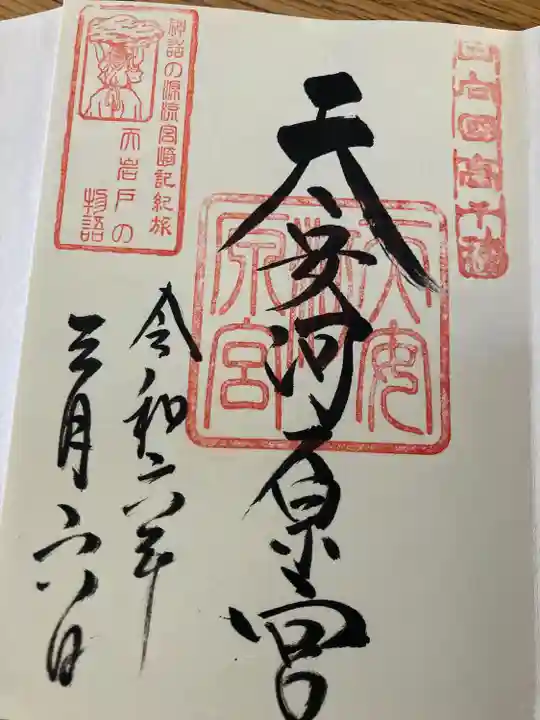 天安河原宮
天安
河
原宮
神話の源流宮崎記紀旅
天岩戸の
物語
令和六年
三月六日